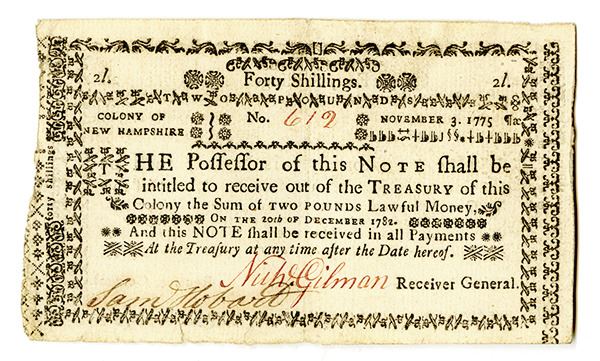 Forty Shillings.
2l. 2l.
TWO POUNDS
COLONY OF NEW HAMPSHIRE
No. 612
NOVEMBER 3. 1775
THE Possessor of this NOTE shall be
intitled to receive out of the TREASURY of this
Colony the Sum of TWO POUNDS Lawful Money,
ON THE 20th OF DECEMBER 1782.
And this NOTE shall be received in all Payments
At the Treasury at any time after the Date hereof.
Nichs Gilman Receiver General.
Sam Hobart
forty shillings